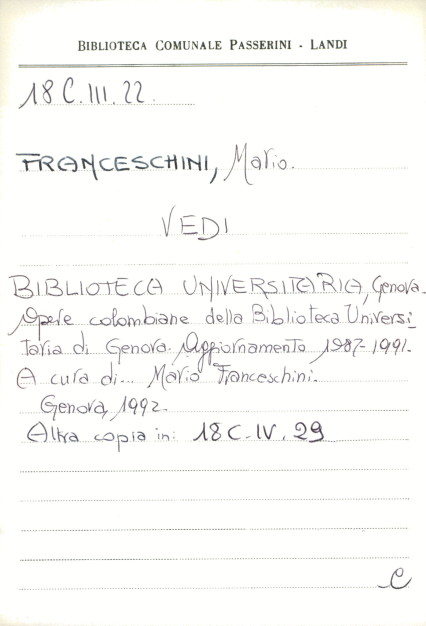 BIBLIOTECA COMUNALE PASSERINI - LANDI
18 C.III.22.
FRANCESCHINI, Mario.
VEDI
BIBLIOTECA UNIVERSITARIA, Genova.
Opere colombiane della Biblioteca Universi
taria di Genova. Aggiornamento 1987-1991.
A cura di... Mario Franceschini.
Genova, 1992.
Altra copia in: 18 C.IV.29
C